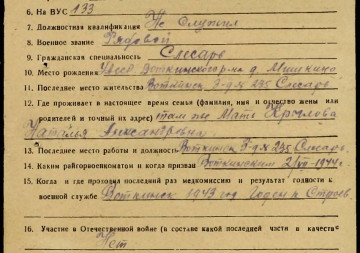 6. На ВУС 133
7. Должностная квалификация Не служил
8. Военное звание Рядовой
9. Гражданская специальность Слесарь
10. Место рождения Воткинского р-на д.
11. Последнее место жительства Воткинск З-д № 235 Слесарь
12. Где проживает в настоящее время семья (фамилия, имя и отчество жены или
родителей и точный их адрес) там же Мать Крылова
Наталья Александровна
13. Последнее место работы и должность Воткинск З-д № 235 Слесарь
14. Каким райгорвоенкоматом и когда призван Воткинским 1944 г.
15. Когда и где проходил последний раз медкомиссию и результат годности к
военной службе Воткинск 1943 год Годен к Строев.
16. Участие в Отечественной войне (в составе какой последней части в качестве